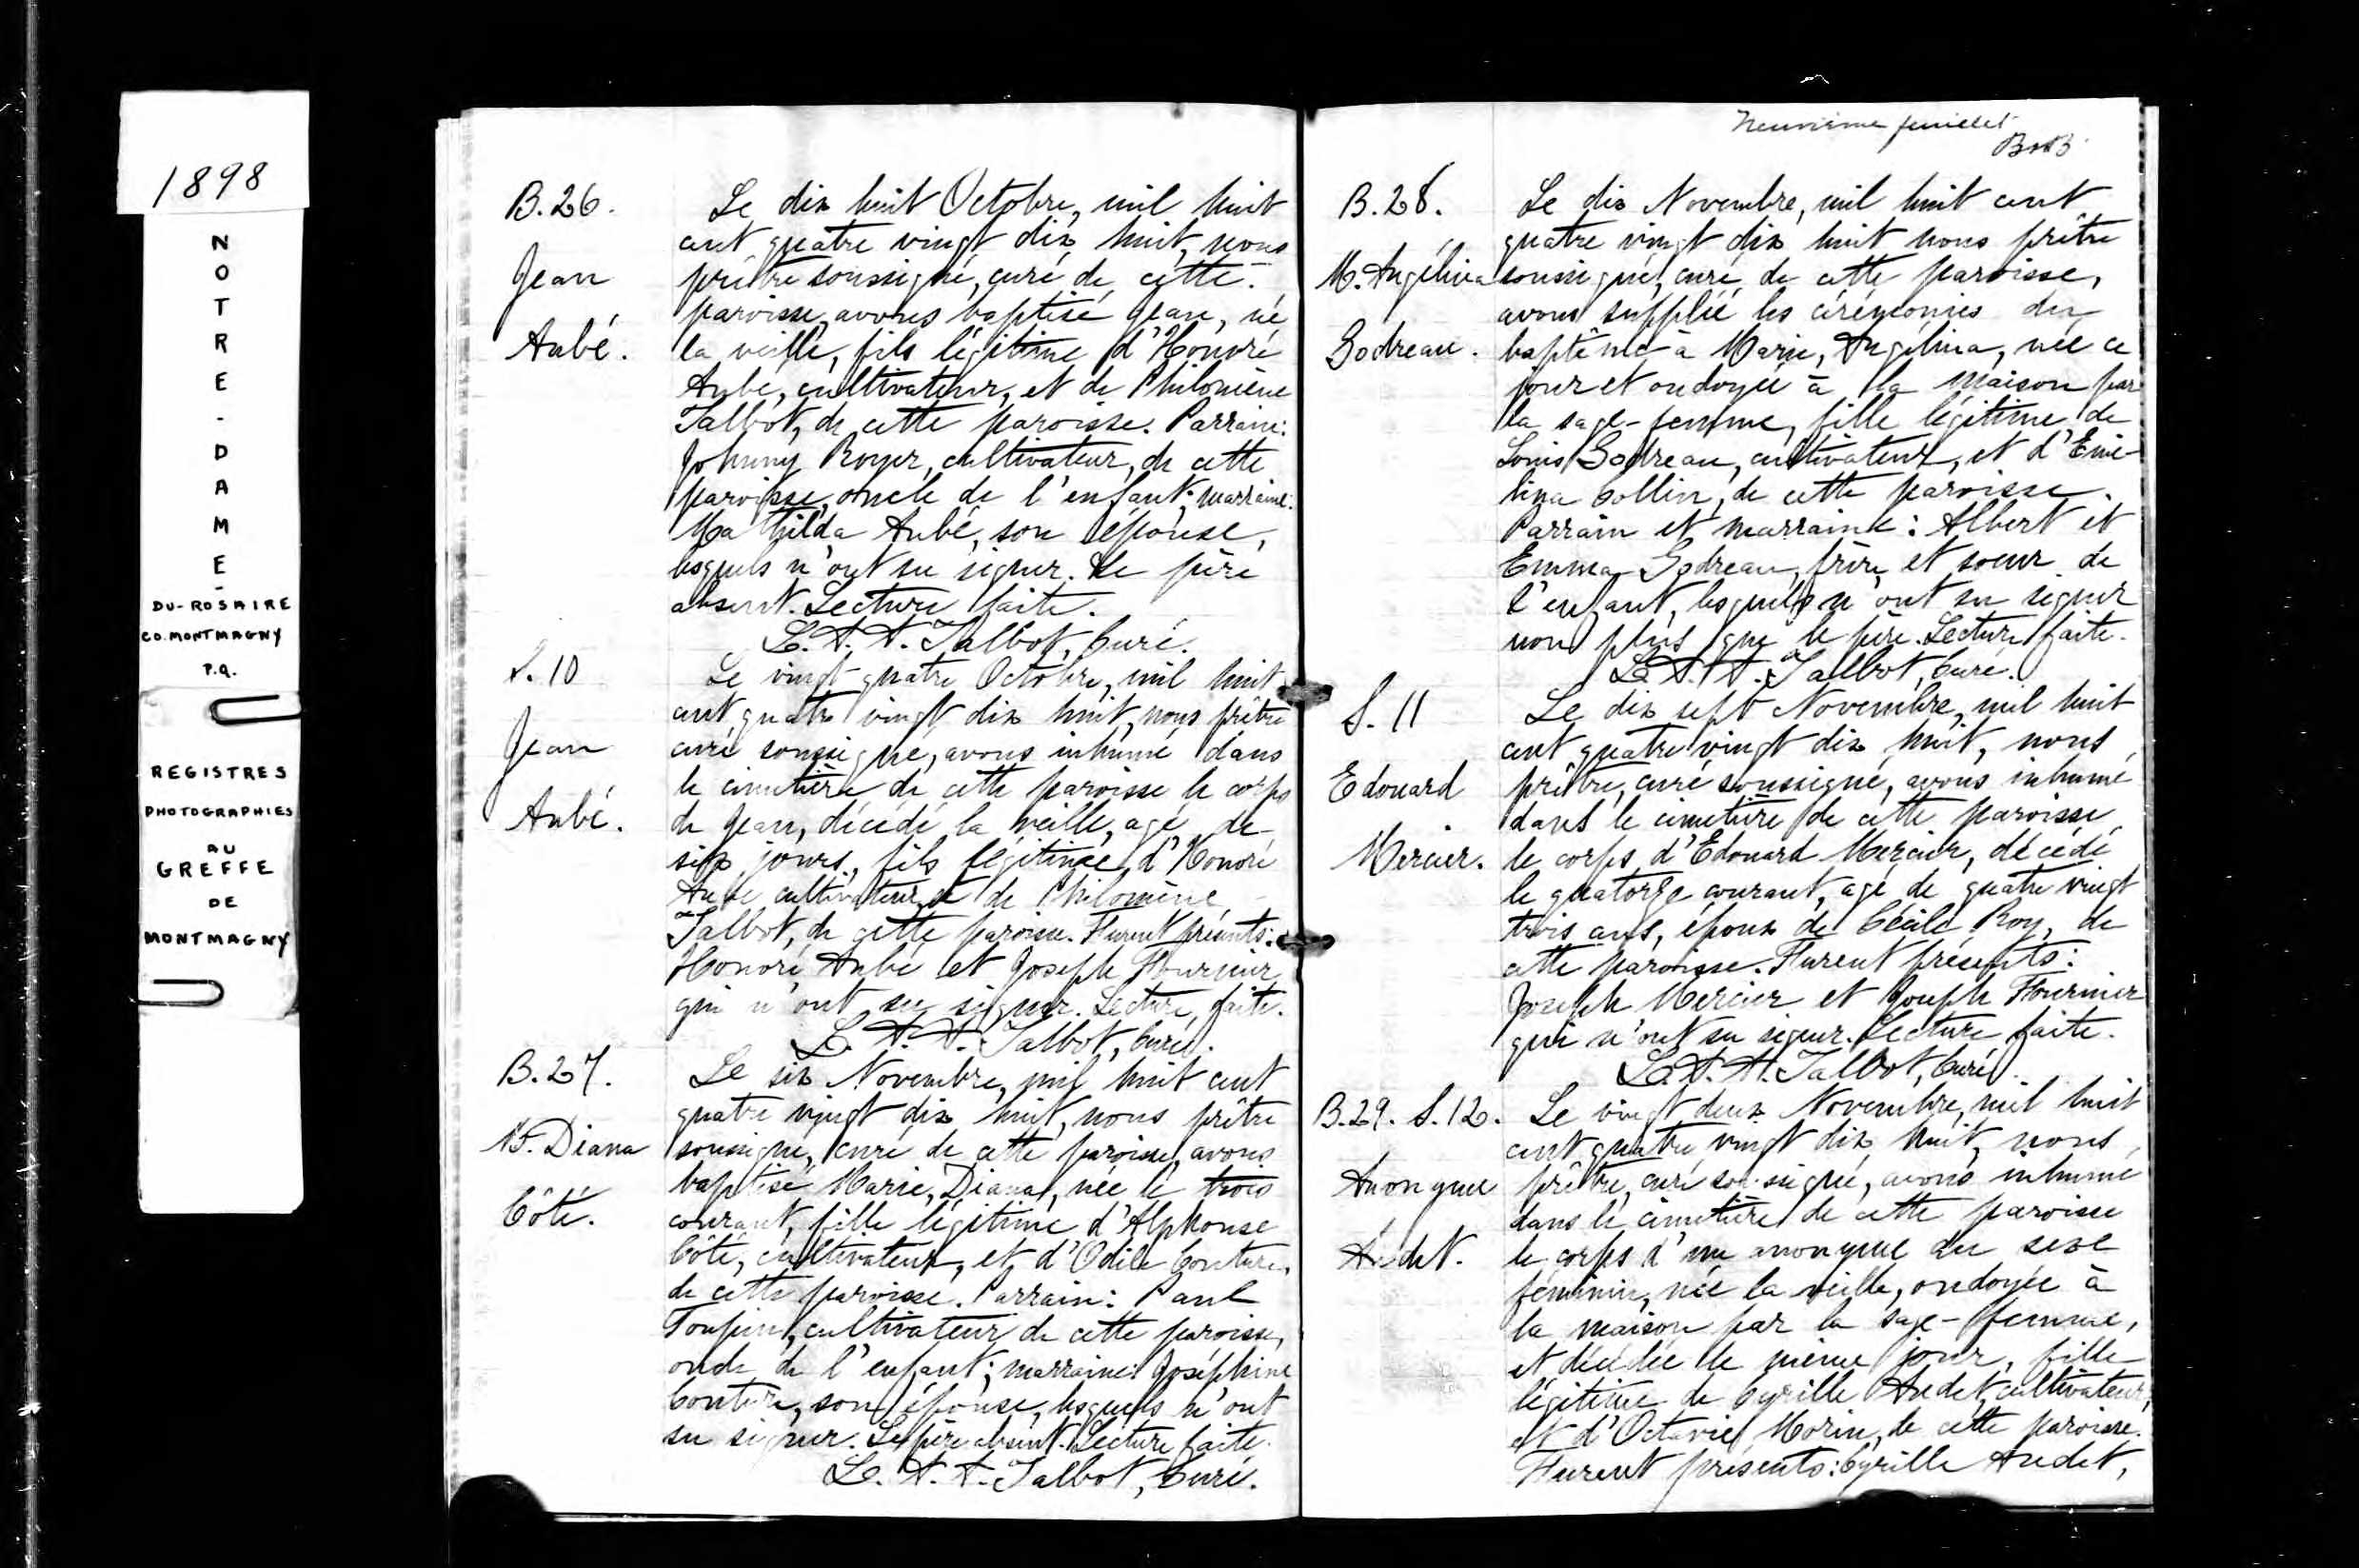 1898
NOTRE-DAME-
DU-ROSAIRE
CO. MONTMAGNY
P.Q.
REGISTRES
PHOTOGRAPHIES
AU
GREFFE
DE
MONTMAGNY
B.26.
Jean
Aubé.
Le dix huit Octobre, mil huit
cent quatre vingt dix huit, nous
prêtre soussigné, curé de cette
paroisse, avons baptisé Jean, né
la veille, fils légitime d'Honoré
Aubé, cultivateur, et de Philomène
Talbot, de cette paroisse. Parrain:
Johnny Royer, cultivateur, de cette
paroisse, oncle de l'enfant; marraine:
Mathilda Aubé, son épouse,
lesquels n'ont su signer. Le père
absent. Lecture faite.
L. A. A. Talbot, Curé.
S. 10
Jean
Aubé.
Le vingt quatre Octobre, mil huit
cent quatre vingt dix huit, nous prêtre
curé soussigné, avons inhumé dans
le cimetière de cette paroisse le corps
de Jean, décédé la veille, agé de
six jours, fils légitime d'Honoré
Aubé cultivateur et de Philomène
Talbot, de cette paroisse. Furent présents:
Honoré Aubé et Joseph Fournier
qui n'ont su signer. Lecture faite.
L. A. A. Talbot, Curé.
B.27.
M. Diana
Côté.
Le six Novembre, mil huit cent
quatre vingt dix huit, nous prêtre
soussigné, curé de cette paroisse, avons
baptisé Marie, Diana, née le trois
courant, fille légitime d'Alphonse
Côté, cultivateur, et d'Odile Couture,
de cette paroisse. Parrain: Paul
Toupin, cultivateur de cette paroisse,
oncle de l'enfant; marraine: Joséphine
Couture, son épouse, lesquels n'ont
su signer. Le père absent. Lecture faite.
L. A. A. Talbot, Curé.
Neuvième feuillet
B.28.
M. Angélina
Godreau.
Le dix Novembre, mil huit cent
quatre vingt dix huit nous prêtre
soussigné, curé de cette paroisse,
avons supplée les cérémonies du
baptême à Marie, Angélina, née ce
jour et ondoyée à la maison par
la sage-femme, fille légitime de
Louis Godreau, cultivateur, et d'Emé-
lina Collin, de cette paroisse.
Parrain et marraine: Albert et
Emma Godreau, frère et soeur de
l'enfant, lesquels n'ont su signer
non plus que le père. Lecture faite.
L. A. A. Talbot, Curé.
S. 11
Edouard
Mercier.
Le dix sept Novembre, mil huit
cent quatre vingt dix huit, nous,
prêtre, curé soussigné, avons inhumé
dans le cimetière de cette paroisse
le corps d'Edouard Mercier, décédé
le quatorze courant, agé de quatre vingt
trois ans, époux de Cécile Roy, de
cette paroisse. Furent présents:
Joseph Mercier et Joseph Fournier
qui n'ont su signer. Lecture faite.
L. A. A. Talbot, Curé.
B.29. S.12.
Anonyme
Audet.
Le vingt deux Novembre, mil huit
cent quatre vingt dix huit, nous,
prêtre, curé soussigné, avons inhumé
dans le cimetière de cette paroisse
le corps d'un anonyme du sexe
féminin, née la veille, ondoyée à
la maison par la sage-femme,
et décédée le même jour, fille
légitime de Cyrille Audet, cultivateur,
et d'Octavie Morin, de cette paroisse.
Furent présents: Cyrille Audet,